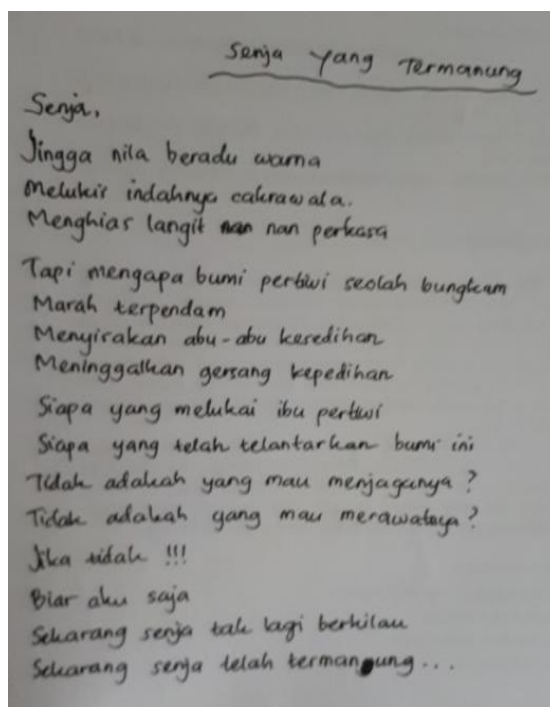 Senja yang Termanung
Senja,
Jingga nila beradu warna
Melukis indahnya cakrawala.
Menghias langit nan perkasa
Tapi mengapa bumi pertiwi seolah bungkam
Marah terpendam
Menyisakan abu-abu kesedihan
Meninggalkan gersang kepedihan
Siapa yang melukai ibu pertiwi
Siapa yang telah telantarkan bumi ini
Tidak adakah yang mau menjaganya?
Tidak adakah yang mau merawatnya?
Jika tidak !!!
Biar aku saja
Sekarang senja tak lagi berkilau
Sekarang senja telah termanung...